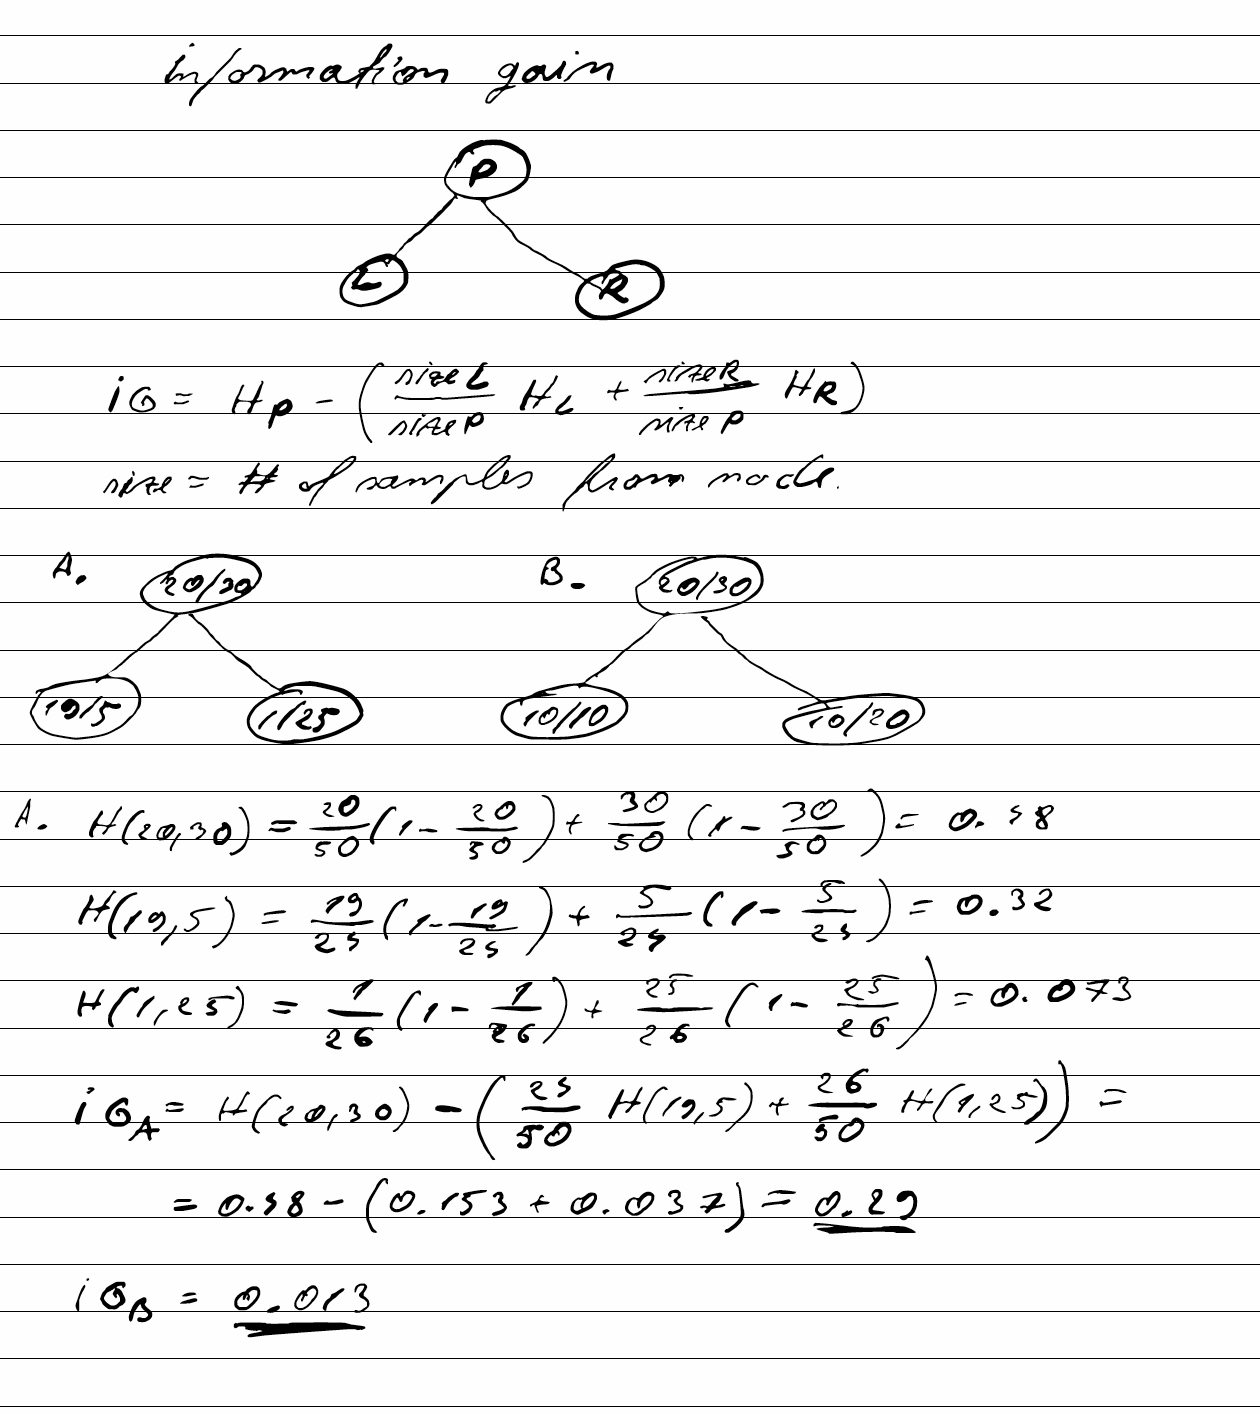 information gain
P
L R
iG = H_P - (size L / size P H_L + size R / size P H_R)
size = # of samples from node.
A. 20/30 B. 20/30
19/5 1/25 10/10 10/20
A. H(20,30) = 20/50 (1 - 20/50) + 30/50 (1 - 30/50) = 0.48
H(19,5) = 19/24 (1 - 19/24) + 5/24 (1 - 5/24) = 0.32
H(1,25) = 1/26 (1 - 1/26) + 25/26 (1 - 25/26) = 0.073
iG_A = H(20,30) - (24/50 H(19,5) + 26/50 H(1,25)) =
= 0.48 - (0.153 + 0.037) = 0.29
iG_B = 0.013